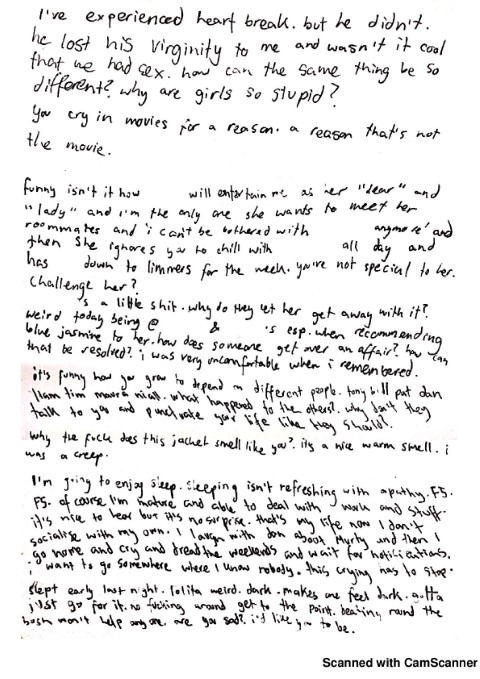 I've experienced heart break. but he didn't.
he lost his virginity to me and wasn't it cool
that we had sex. how can the same thing be so
different? why are girls so stupid?
You cry in movies for a reason. a reason that's not
the movie.
funny isn't it how will entertain me as her "dear" and
"lady" and i'm the only one she wants to meet her
roommates and i can't be bothered with anymore' and
then she ignores you to chill with all day and
has down to limmers for the week. you're not special to her.
Challenge her?
's a little shit. why do they let her get away with it?
weird today being @ & 's esp. when recommending
blue jasmine to her. how does someone get over an affair? how can
that be resolved? i was very uncomfortable when i remembered.
it's funny how you grow to depend on different people. tony bill pat dan
liam tim niall. what happened to the others? why don't they
talk to you and punctuate your life like they should?
why the fuck does this jacket smell like you? its a nice warm smell. i
was a creep.
I'm going to enjoy sleep. sleeping isn't refreshing with apathy. F5.
F5. of course I'm mature and able to deal with work and stuff.
it's nice to hear but it's no surprise. that's my life now I don't
socialise with my own. I laugh with don about Murty and then I
go home and cry and dread the weekends and wait for notifications.
i want to go somewhere where I know nobody. this crying has to stop.
slept early last night. lolita weird. dark. makes one feel dark. gotta
just go for it. no fucking around get to the point. beating round the
bush won't help anyone. are you sad? i'd like you to be.
Scanned with CamScanner